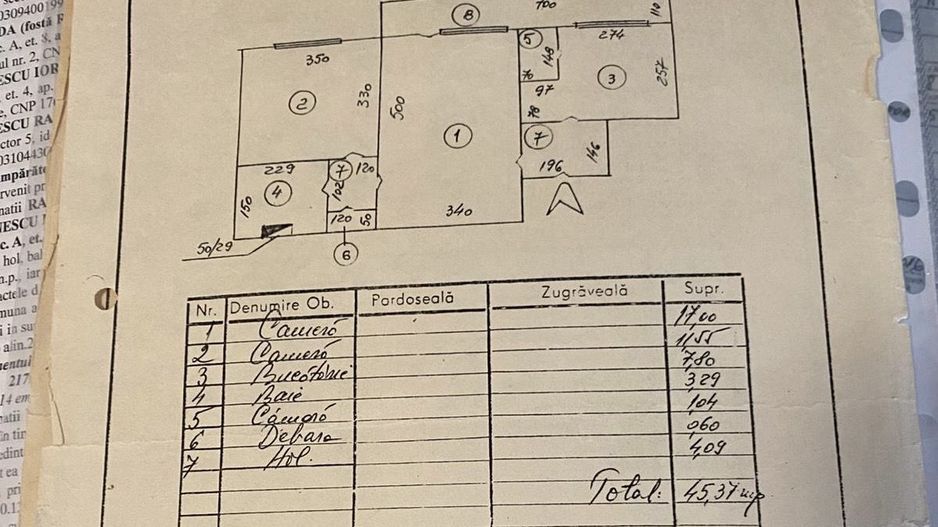 0309400199
DA (fostă R
c. A, et. 8, a
ul nr. 2, CN
ESCU IOR
et. 4, ap.
e, CNP 170
ESCU RA
ctor 5, id
03104430
umpărăto
rvenit pr
natii RA
NESCU M
c. A, et.
hol, bal
n.p., iar
actele d
muna a
i in su
alin.2
mentului
217
14 em
natii
în tim
edint
t ea
pri
0.1
8
700
110
350
5
148
274
3
257
2
330
500
70
97
78
1
7
146
196
229
7
120
4
102
150
340
120
50
50/29
6
Nr. Denumire Ob. Pardoseală Zugrăveală Supr.
1 Cameră 17,00
2 Cameră 11,55
3 Bucătărie 7,80
4 Baie 3,29
5 Cămară 1,04
6 Debara 0,60
7 Hol. 4,09
Total: 45,37 mp